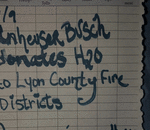 /9
Anheuser Busch
Donates H2O
to Lyon County Fire
Districts